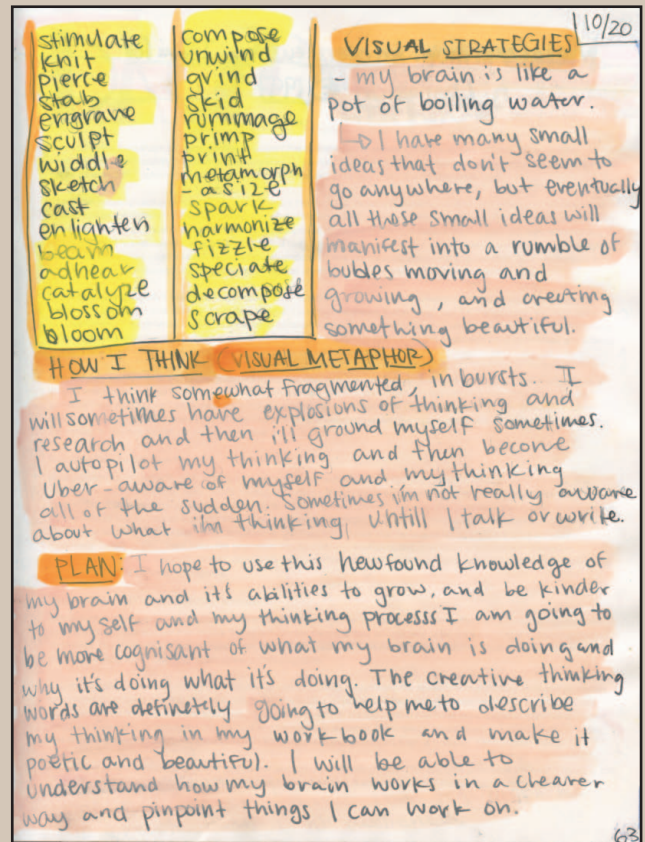 stimulate
knit
pierce
stab
engrave
sculpt
widdle
sketch
cast
enlighten
beam
adhear
catalyze
blossom
bloom
compose
unwind
grind
skid
rummage
primp
print
metamorph
-asize
spark
harmonize
fizzle
speciate
decompose
scrape
10/20
VISUAL STRATEGIES
- my brain is like a
pot of boiling water.
→ I have many small
ideas that don't seem to
go anywhere, but eventually
all those small ideas will
manifest into a rumble of
bubles moving and
growing, and creating
something beautiful.
HOW I THINK (VISUAL METAPHOR)
I think somewhat fragmented, in bursts. I
will sometimes have explosions of thinking and
research and then i'll ground myself sometimes.
I autopilot my thinking and then become
Uber-aware of myself and my thinking
all of the sudden. Sometimes i'm not really aware
about what i'm thinking, untill I talk or write.
PLAN: I hope to use this newfound knowledge of
my brain and it's abilities to grow, and be kinder
to my self and my thinking processs I am going to
be more cognisant of what my brain is doing and
why it's doing what it's doing. The creative thinking
words are definetely going to help me to describe
my thinking in my workbook and make it
poetic and beautiful. I will be able to
understand how my brain works in a clearer
way and pinpoint things I can work on.
63